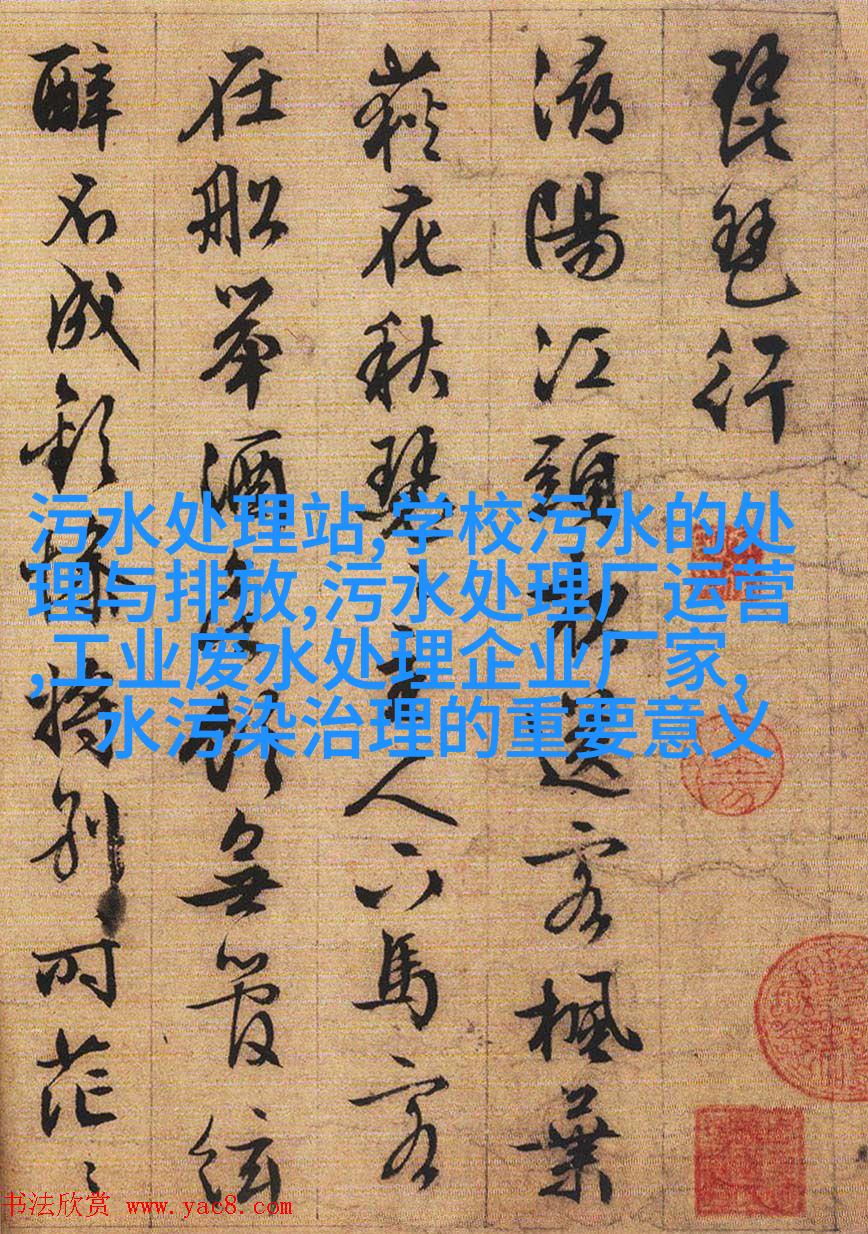 琵琶行
潯陽江頭夜送客楓葉
荻花秋瑟〻主人下馬客
在船舉酒欲飲無管絃
醉不成歡慘將別〻时茫〻
污水处理站,学校污水的处
理与排放,污水处理厂运营
,工业废水处理企业厂家,
水污染治理的重要意义
书法欣赏 www.yac8.com